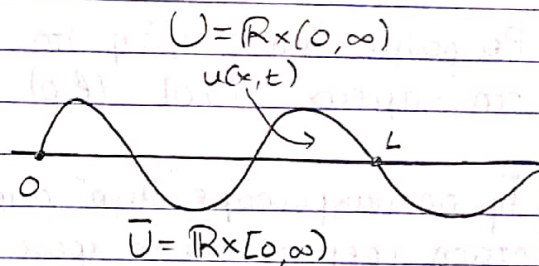 U=ℝ×(0,∞)
u(x,t)
L
O
Ū=ℝ×[0,∞)